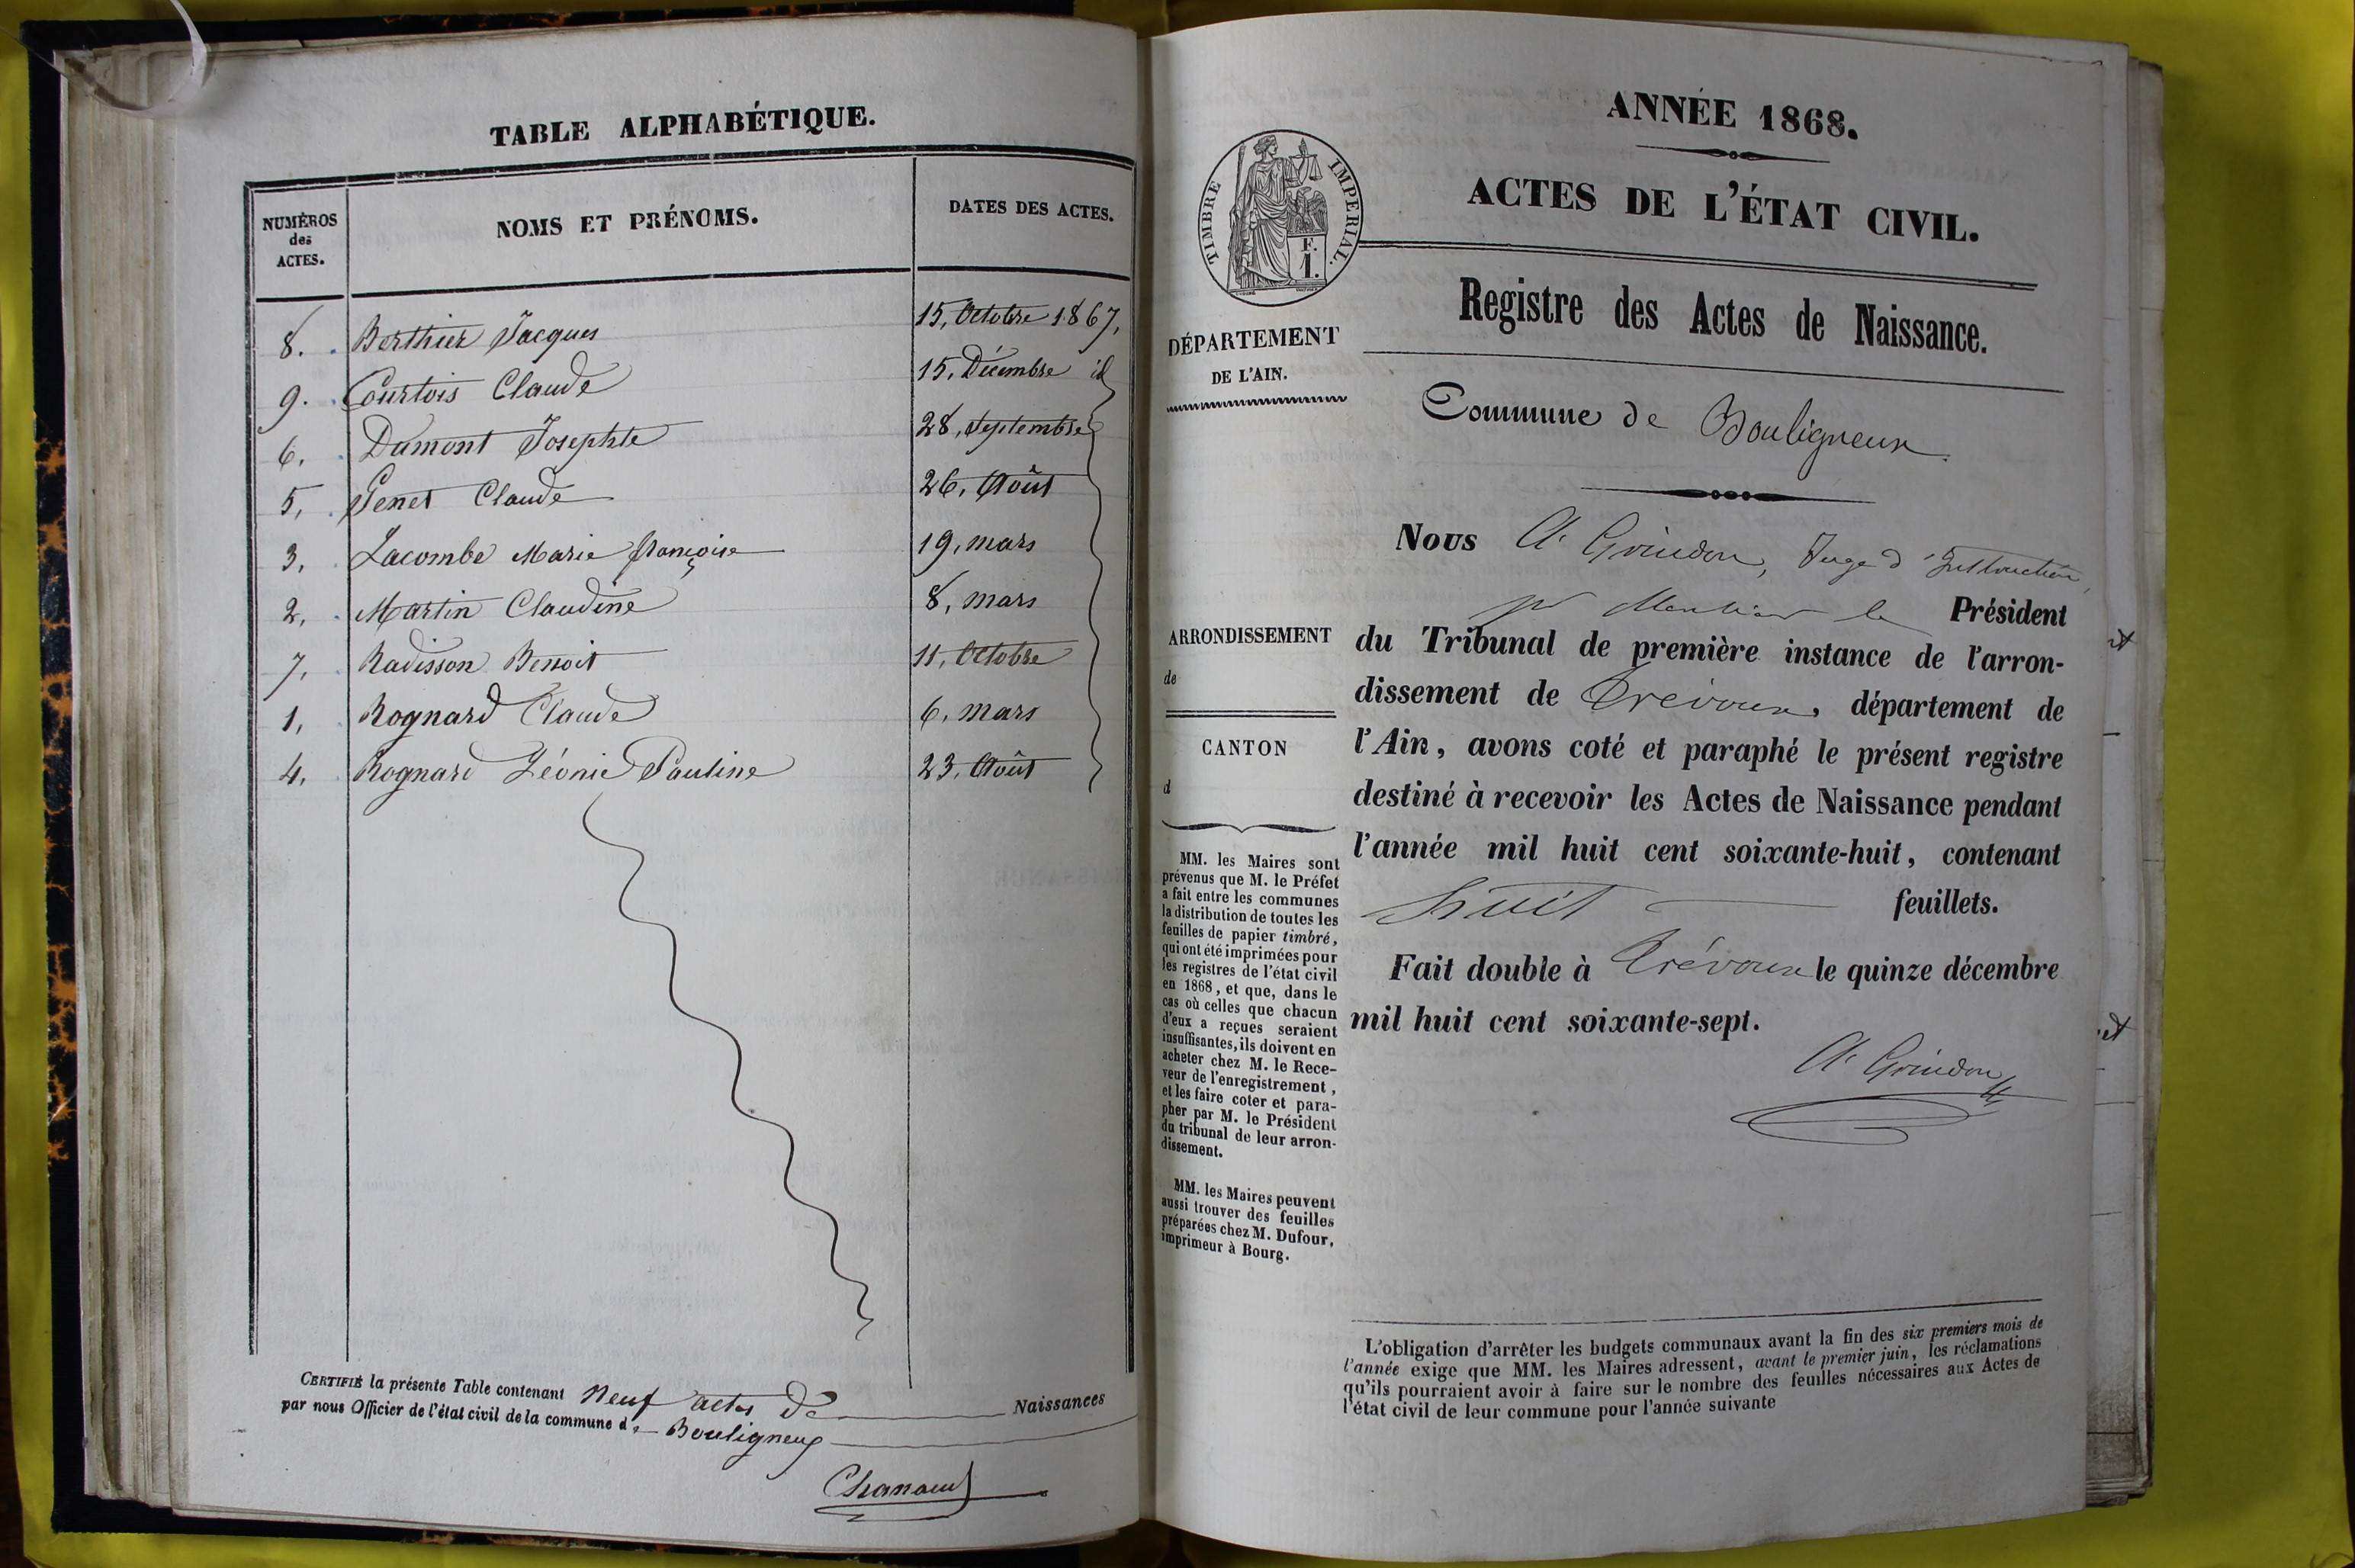 TABLE ALPHABÉTIQUE.
NUMÉROS des ACTES.
NOMS ET PRÉNOMS.
DATES DES ACTES.
8. Berthier Jacques 15, Octobre 1867,
9. Courtois Claude 15, Décembre id
6. Dumont Josephte 28, Septembre
5, Genet Claude 26, Août
3, Lacombe Marie françoise 19, mars
2, Martin Claudine 8, mars
7, Radisson Benoit 11, Octobre
1, Rognard Claude 6, mars
4, Rognard Léonie Pauline 23, Août
CERTIFIÉ la présente Table contenant Neuf actes De Naissances
par nous Officier de l'état civil de la commune d, Bouligneux
TIMBRE IMPERIAL.
F.
1.
DÉPARTEMENT
DE L'AIN.
ARRONDISSEMENT
de
CANTON
d
MM. les Maires sont
prévenus que M. le Préfet
a fait entre les communes
la distribution de toutes les
feuilles de papier timbré,
qui ont été imprimées pour
les registres de l'état civil
en 1868, et que, dans le
cas où celles que chacun
d'eux a reçues seraient
insuffisantes, ils doivent en
acheter chez M. le Rece-
veur de l'enregistrement,
et les faire coter et para-
pher par M. le Président
du tribunal de leur arron-
dissement.
MM. les Maires peuvent
aussi trouver des feuilles
préparées chez M. Dufour,
imprimeur à Bourg.
ANNÉE 1868.
ACTES DE L'ÉTAT CIVIL.
Registre des Actes de Naissance.
Commune de Bouligneux
Nous A. Grindon, Juge d'Instruction,
pr Monsieur le Président
du Tribunal de première instance de l'arron-
dissement de Trévoux, département de
l'Ain, avons coté et paraphé le présent registre
destiné à recevoir les Actes de Naissance pendant
l'année mil huit cent soixante-huit, contenant
huit feuillets.
Fait double à Trévoux le quinze décembre
mil huit cent soixante-sept.
A. Grindon
L'obligation d'arrêter les budgets communaux avant la fin des six premiers mois de
l'année exige que MM. les Maires adressent, avant le premier juin, les réclamations
qu'ils pourraient avoir à faire sur le nombre des feuilles nécessaires aux Actes de
l'état civil de leur commune pour l'année suivante